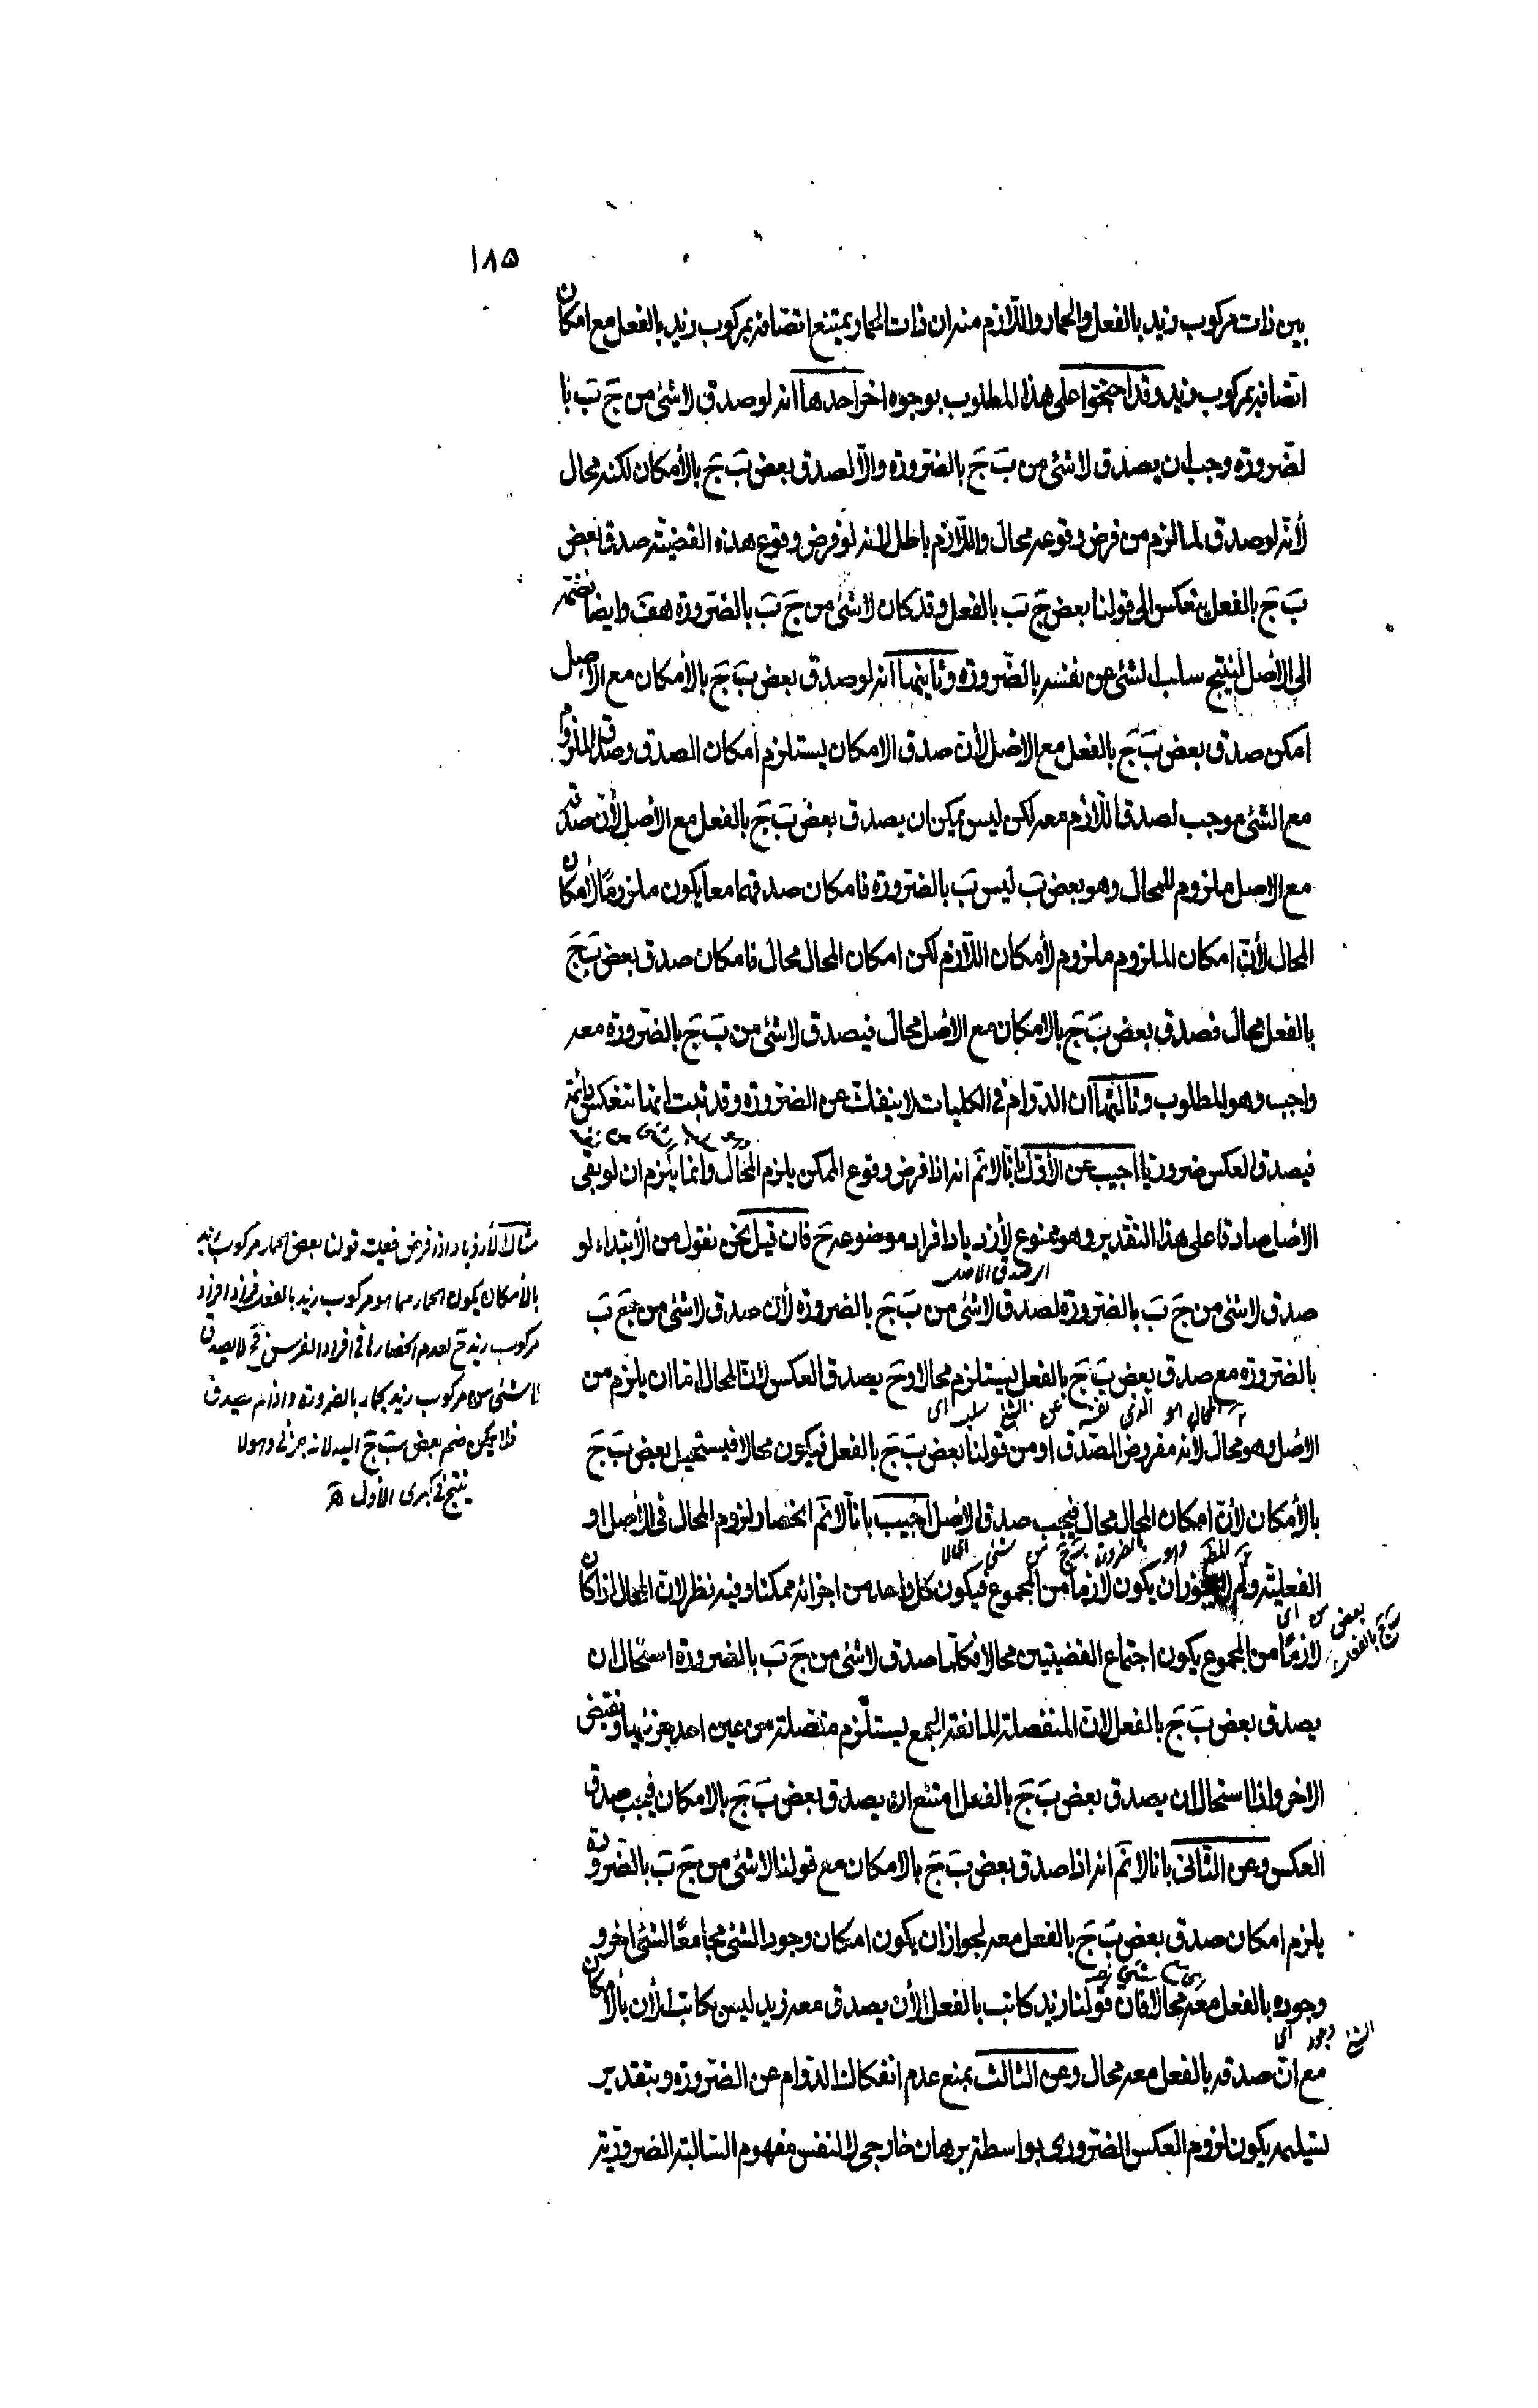 ١٨٥
بين ذات مركوب زيد بالفعل والحمار واللّازم منه ان ذات الحمار يمتنع اتصافه بمركوب زيد بالفعل مع امكان
اتصافه بمركوب زيد وقد احتجّوا على هذا المطلوب بوجوه اخر احدها انه لو صدق لا شئ من جَ بَ با
لضّرورة وجب ان يصدق لا شئ من بَ جَ بالضّرورة والّا لصدق بعض بَ جَ بالأمكان لكنه محال
لأنّه لو صدق لما لزم من فرض وقوعه محال واللّازم باطل لانه لو فرض وقوع هذه القضيّة صدق بعض
بَ جَ بالفعل ينعكس الى قولنا بعض جَ بَ بالفعل وقد كان لا شئ من جَ بَ بالضّرورة هف وايضا نضمّه
الى الاصل لينتج سلب الشئ عن نفسه بالضّرورة وثانيها انه لو صدق بعض بَ جَ بالأمكان مع الاصل
امكن صدق بعض بَ جَ بالفعل مع الاصل لأنّ صدق الامكان يستلزم امكان الصدق وصدق الملزوم
مع الشئ موجب لصدق اللّازم معه لكن ليس يمكن ان يصدق بعض بَ جَ بالفعل مع الأصل لأنّ صدقه
مع الاصل ملزوم للمحال وهو بعض بَ ليس بَ بالضّرورة فامكان صدقهما معا يكون ملزومًا لأمكان
المحال لأنّ امكان الملزوم ملزوم لأمكان اللّازم لكن امكان المحال محال فامكان صدق بعض بَ جَ
بالفعل محال فصدق بعض بَ جَ بالامكان مع الاصل محال فيصدق لا شئ من بَ جَ بالضّرورة معه
واجب وهو المطلوب وثالثها ان الدّوام فى الكليات لا ينفك عن الضّرورة وقد ثبت انها تنعكس دائمة
فيصدق العكس ضروريا اجيب عن الأوّل بانّا لا نَم انه اذا فرض وقوع الممكن يلزم المحال وانما يلزم ان لو بقى
الاصل صادقا على هذا التّقدير وهو ممنوع لأزدياد افراد موضوعه حَ فان قيل نحن نقول من الأبتداء لو
صدق لا شئ من جَ بَ بالضّرورة لصدق لا شئ من بَ جَ بالضرورة لأن صدق لا شئ من جَ بَ
بالضّرورة مع صدق بعض بَ جَ بالفعل يستلزم محالا وحَ يصدق العكس لأنّ المحال امّا ان يلزم من
الاصل وهو محال لأنه مفروض الصّدق او من قولنا بعض بَ جَ بالفعل فيكون محالا فيستحيل بعض بَ جَ
بالأمكان لأنّ امكان المحال محال فيجب صدق الاصل اجيب بانّا لا نَم انحصار لزوم المحال فى الأصل او
الفعليّة ولم لا يجوز ان يكون لازمًا من المجموع فيكون كل واحد من اجزائه ممكنا وفيه نظر لان المحال اذا كان
لازمًا من المجموع يكون اجتماع القضيتين محالا فكلّما صدق لا شئ من جَ بَ بالضرورة استحال ان
يصدق بعض بَ جَ بالفعل لان المنفصلة المانعة الجمع يستلزم متّصلة من عين احد جزئيها ونقيض
الاخر واذا استحال ان يصدق بعض بَ جَ بالفعل امتنع ان يصدق بعض بَ جَ بالامكان فيجب صدق
العكس وعن الثّانى بانا لا نَم انه اذا صدق بعض بَ جَ بالامكان مع قولنا لا شئ من جَ بَ بالضّرورة
يلزم امكان صدق بعض بَ جَ بالفعل معه لجواز ان يكون امكان وجود الشئ مجامعًا لشئ اخر و
وجوده بالفعل معه محالا فان قولنا زيد كاتب بالفعل الأن يصدق معه زيد ليس بكاتب الأن بالأمكان
مع انّ صدقه بالفعل معه محال وعن الثالث بمنع عدم انفكاك الدّوام عن الضّرورة وبتقدير
تسليمه يكون لزوم العكس الضّرورى بواسطة برهان خارجى لا لنفس مفهوم السّالبة الضروريّة
اى صدق الاصل
مثال الأزدياد اذا فرض فعلية قولنا بعض الحمار مركوب زيد
بالأمكان يكون الحمار مما هو مركوب زيد بالفعل فزاد افراد
مركوب زيد حَ لعدم انحصارها فى افراد الفرس فحَ لا يصدق
لا شئ من مركوب زيد بحمار بالضرورة واذا لم يصدق
فلا يمكن ضم بعض بَ جَ اليه لانه جزئى وهو لا
ينتج فى كبرى الأول